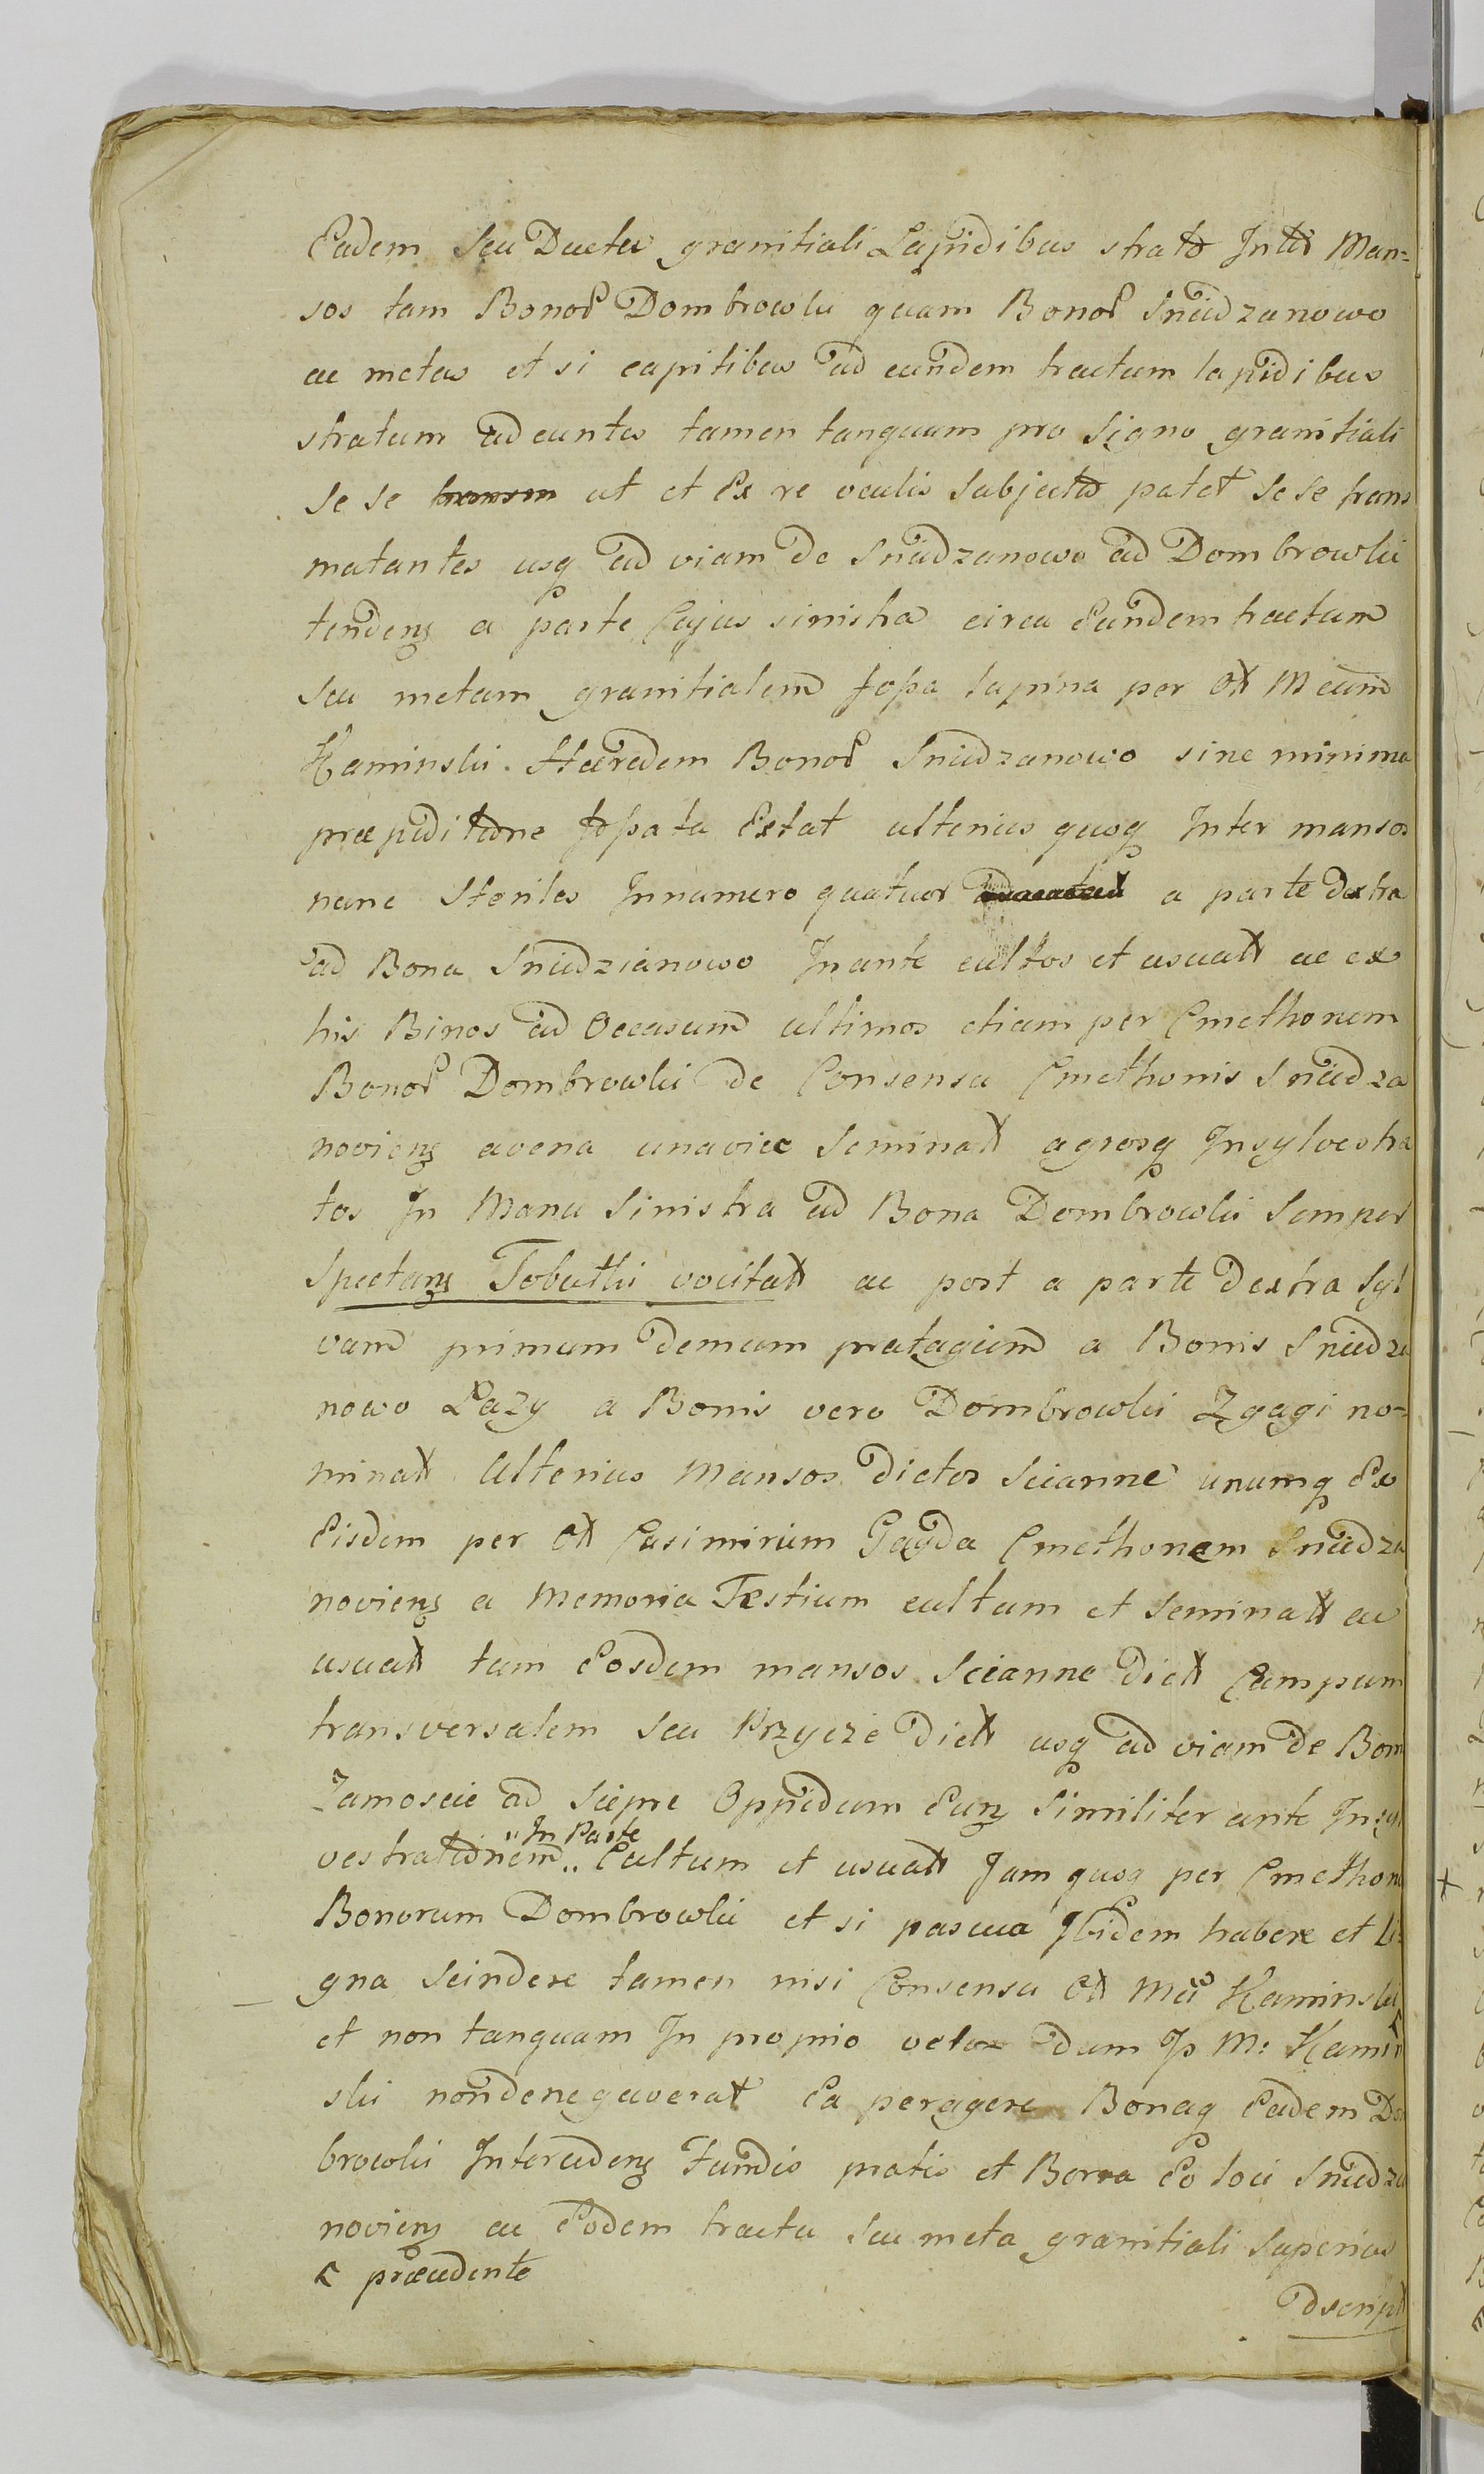 Eadem seu Ductu granitiali Lapidibus strato Inter Man=
sos tam Bonor Dombrowki quam Bonor Sniedzanowo
ac metas et si capitibus ad eundem tractum lapidibus
stratum adeuntes tamen tanquam pro Signo granitiali
se se ut et Ex re oculis Subjecta patet Se se trans
matantes usq ad viam de Sniedzanowo ad Dombrowki
tendens a parte Cujus sinistra circa Eundem tractum
seu metam granitialem fossa lupina per Mcum
Kaminski Hæredem Bonor Sniedzanowo sine minima
præpeditione fossata Extat ulterius quoq Inter mansos
nunc Steriles Innumero quatuor a parte dextra
ad Bona Sniedzianowo In ante cultos et usuat ac ex
his Binos ad Occasum ultimos etiam per Cmethonem
Bonor Dombrowki de Consensu Cmethonis Sniedza
noviens avena unavice Seminat agrosq Insylvestra
tos In Manu Sinistra ad Bona Dombrowki Semper
Spectans Tobulki vocitat ac post a parte Dextra Syl
vam primum demum pratagium a Bonis Sniedza
nowo Łazy a Bonis vero Dombrowki Zgagi no=
minat Ulterius Mansos Dictos Scianne unumq Ex
Eisdem per Casimirum Gayda Cmethonem Sniedza
noviens a Memoria Testium cultum et Seminat ac
usuat tum Eosdem mansos Scianne dict Campum
transversalem seu Przycze Dict usq ad viam de Bon
Zamoscie ad Siepre Oppidum Euns Similiter ante Insyl
vestrationem "In Parte" Cultum et usuat Jam quoq per Cmethone
Bonorum Dombrowki et si pascua Ibidem habere et Li=
gna Scindere tamen nisi Consensu Mci Kaminski
et non tanquam In proprio velox dum M: Kamin
ski non denegaverat Ea peragere Bonaq Eadem Do
browki Intercedens fundis pratis et Borra Eo loci Sniedza
noviens ac Eodem tractu seu meta granitiali Superius
præcedente
Dscript